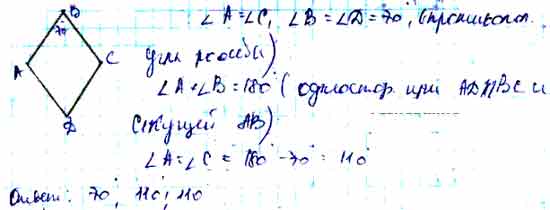 B
70°
A
C
D
∠A=∠C, ∠B=∠D=70, (противопол.
углы ромба)
∠A+∠B=180° (одностор. при AD∥BC и
секущей AB)
∠A=∠C = 180°-70° = 110°
Ответ: 70°, 110°, 110